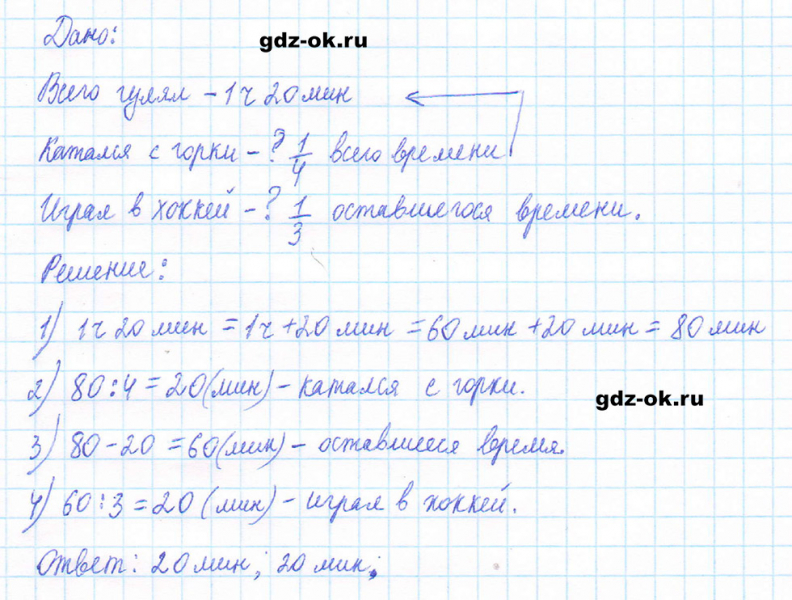 Дано:
gdz-ok.ru
Всего гулял – 1 ч 20 мин
Катался с горки – ? 1/4 всего времени
Играл в хоккей – ? 1/3 оставшегося времени.
Решение:
1) 1ч 20 мин = 1ч + 20 мин = 60 мин + 20 мин = 80 мин
2) 80 : 4 = 20 (мин) – катался с горки.
gdz-ok.ru
3) 80 – 20 = 60 (мин) – оставшееся время.
4) 60 : 3 = 20 (мин) – играл в хоккей.
Ответ: 20 мин; 20 мин;